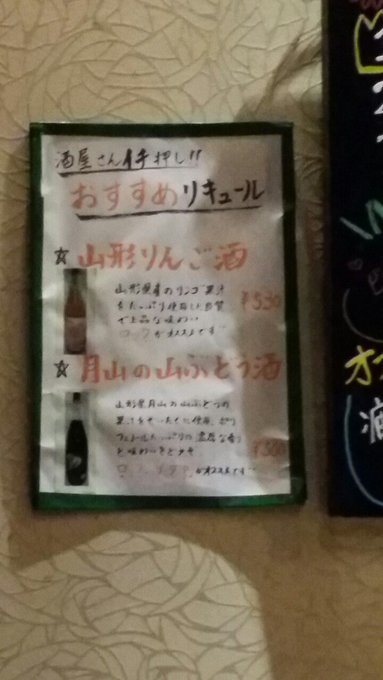 酒屋さんイチ押し!!
おすすめリキュール
☆山形りんご酒
山形県産のリンゴ果汁
をたっぷり使用した良質
で上品な味わい
ロックがオススメです
¥530
☆月山の山ぶどう酒
山形県月山の山ぶどうの
果汁をぜいたくに使用、ポリ
フェノールたっぷりの濃厚な香り
と味わい
がオススメです
オ